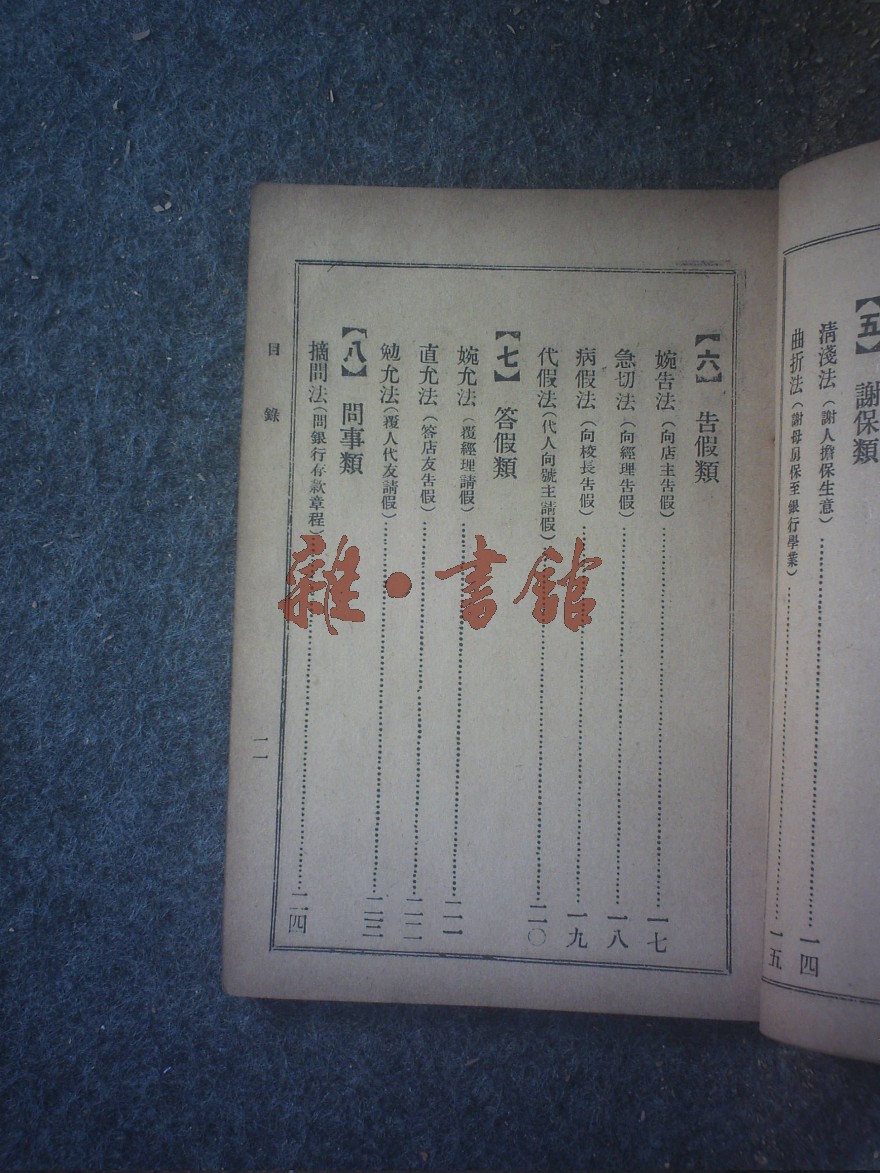 【五】 謝保類
清淺法（謝人擔保生意）……一四
曲折法（謝母舅保至銀行學業）……一五
【六】 告假類
婉告法（向店主告假）……一七
急切法（向經理告假）……一八
病假法（向校長告假）……一九
代假法（代人向號主請假）……二〇
【七】 答假類
婉允法（覆經理請假）……二一
直允法（答店友告假）……二二
勉允法（覆人代友請假）……二三
【八】 問事類
摘問法（問銀行存款章程）……二四
目錄
二
雜·書館